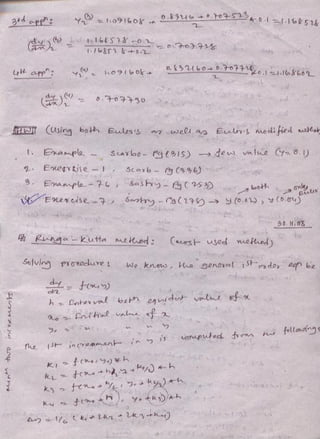 3rd appn: y2(3) = 1.091608 + (0.83216 + 0.707523)/2 × 0.1 = 1.168528
(dy/dx)2(3) = (1.168528 - 0.2)/(1.168528 + 0.2) = 0.707738
4th appn: y2(4) = 1.091608 + 2 × 0.1 = 1.168602
(dy/dx)2(4) = 0.707790
(Using both Euler's as well as Euler's modified method
1. Example - Scarbo - pg (315) → dew value (y = 0.1)
2. Exercise - 1, Scarb - pg (336)
3. Example - 76, Sastry - pg (253)
Exercise - 7, Sastry - pg (278) → y(0.02), y(0.04)
both only Euler
30.11.08
Runga - Kutta method: (most used method)
Solving procedure: We know, the general 1st order eqn be
dy/dx = f(x,y)
h = Interval betn equidist value of x
x0 = Initial value of x
y0 = " " " y
The 1st increament in y is computed from the following
K1 = f(x0, y0) * h
K2 = f(x0 + h/2, y0 + k1/2) * h
K3 = f(x0 + h/2, y0 + k2/2) * h
K4 = f(x0 + h, y0 + k3) * h
Δy = 1/6 (k1 + 2k2 + 2k3 + k4)